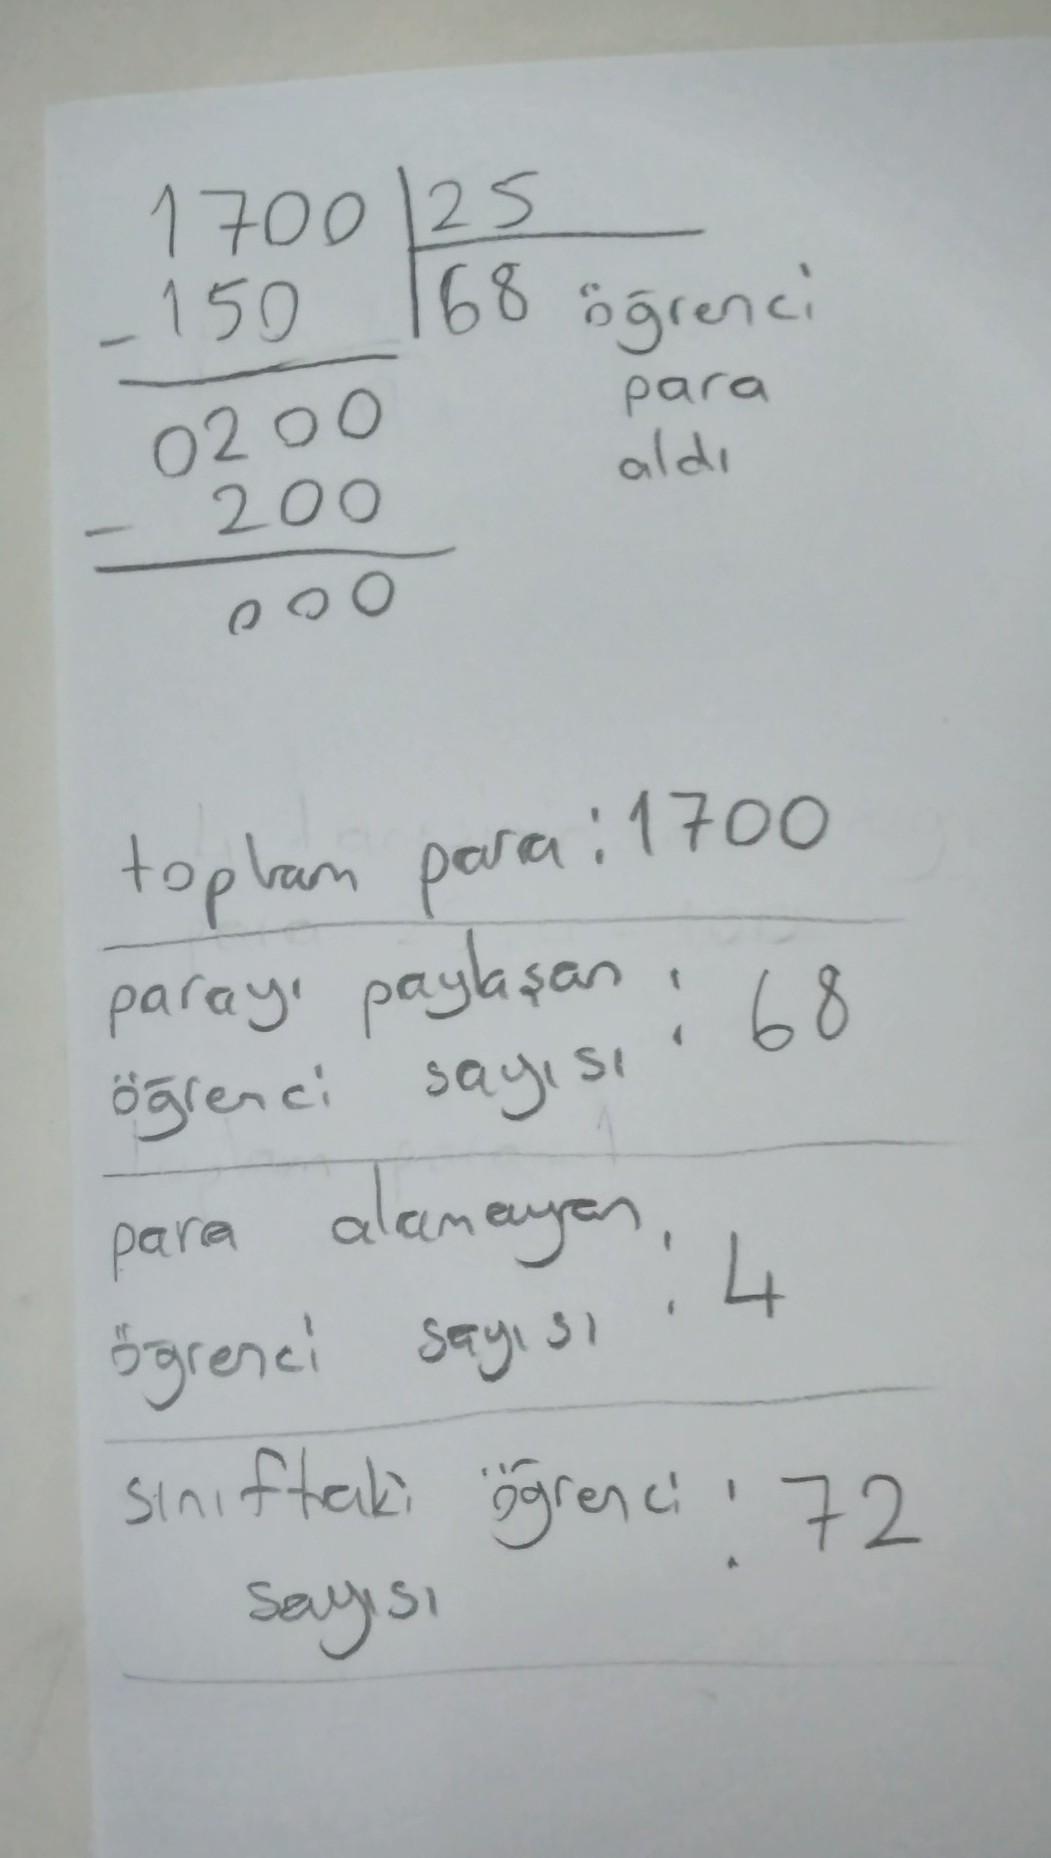 1700 25
- 150 68 öğrenci
para
0200 aldı
- 200
000
toplam para : 1700
parayı paylaşan : 68
öğrenci sayısı
para alamayan : 4
öğrenci sayısı
sınıftaki öğrenci : 72
sayısı